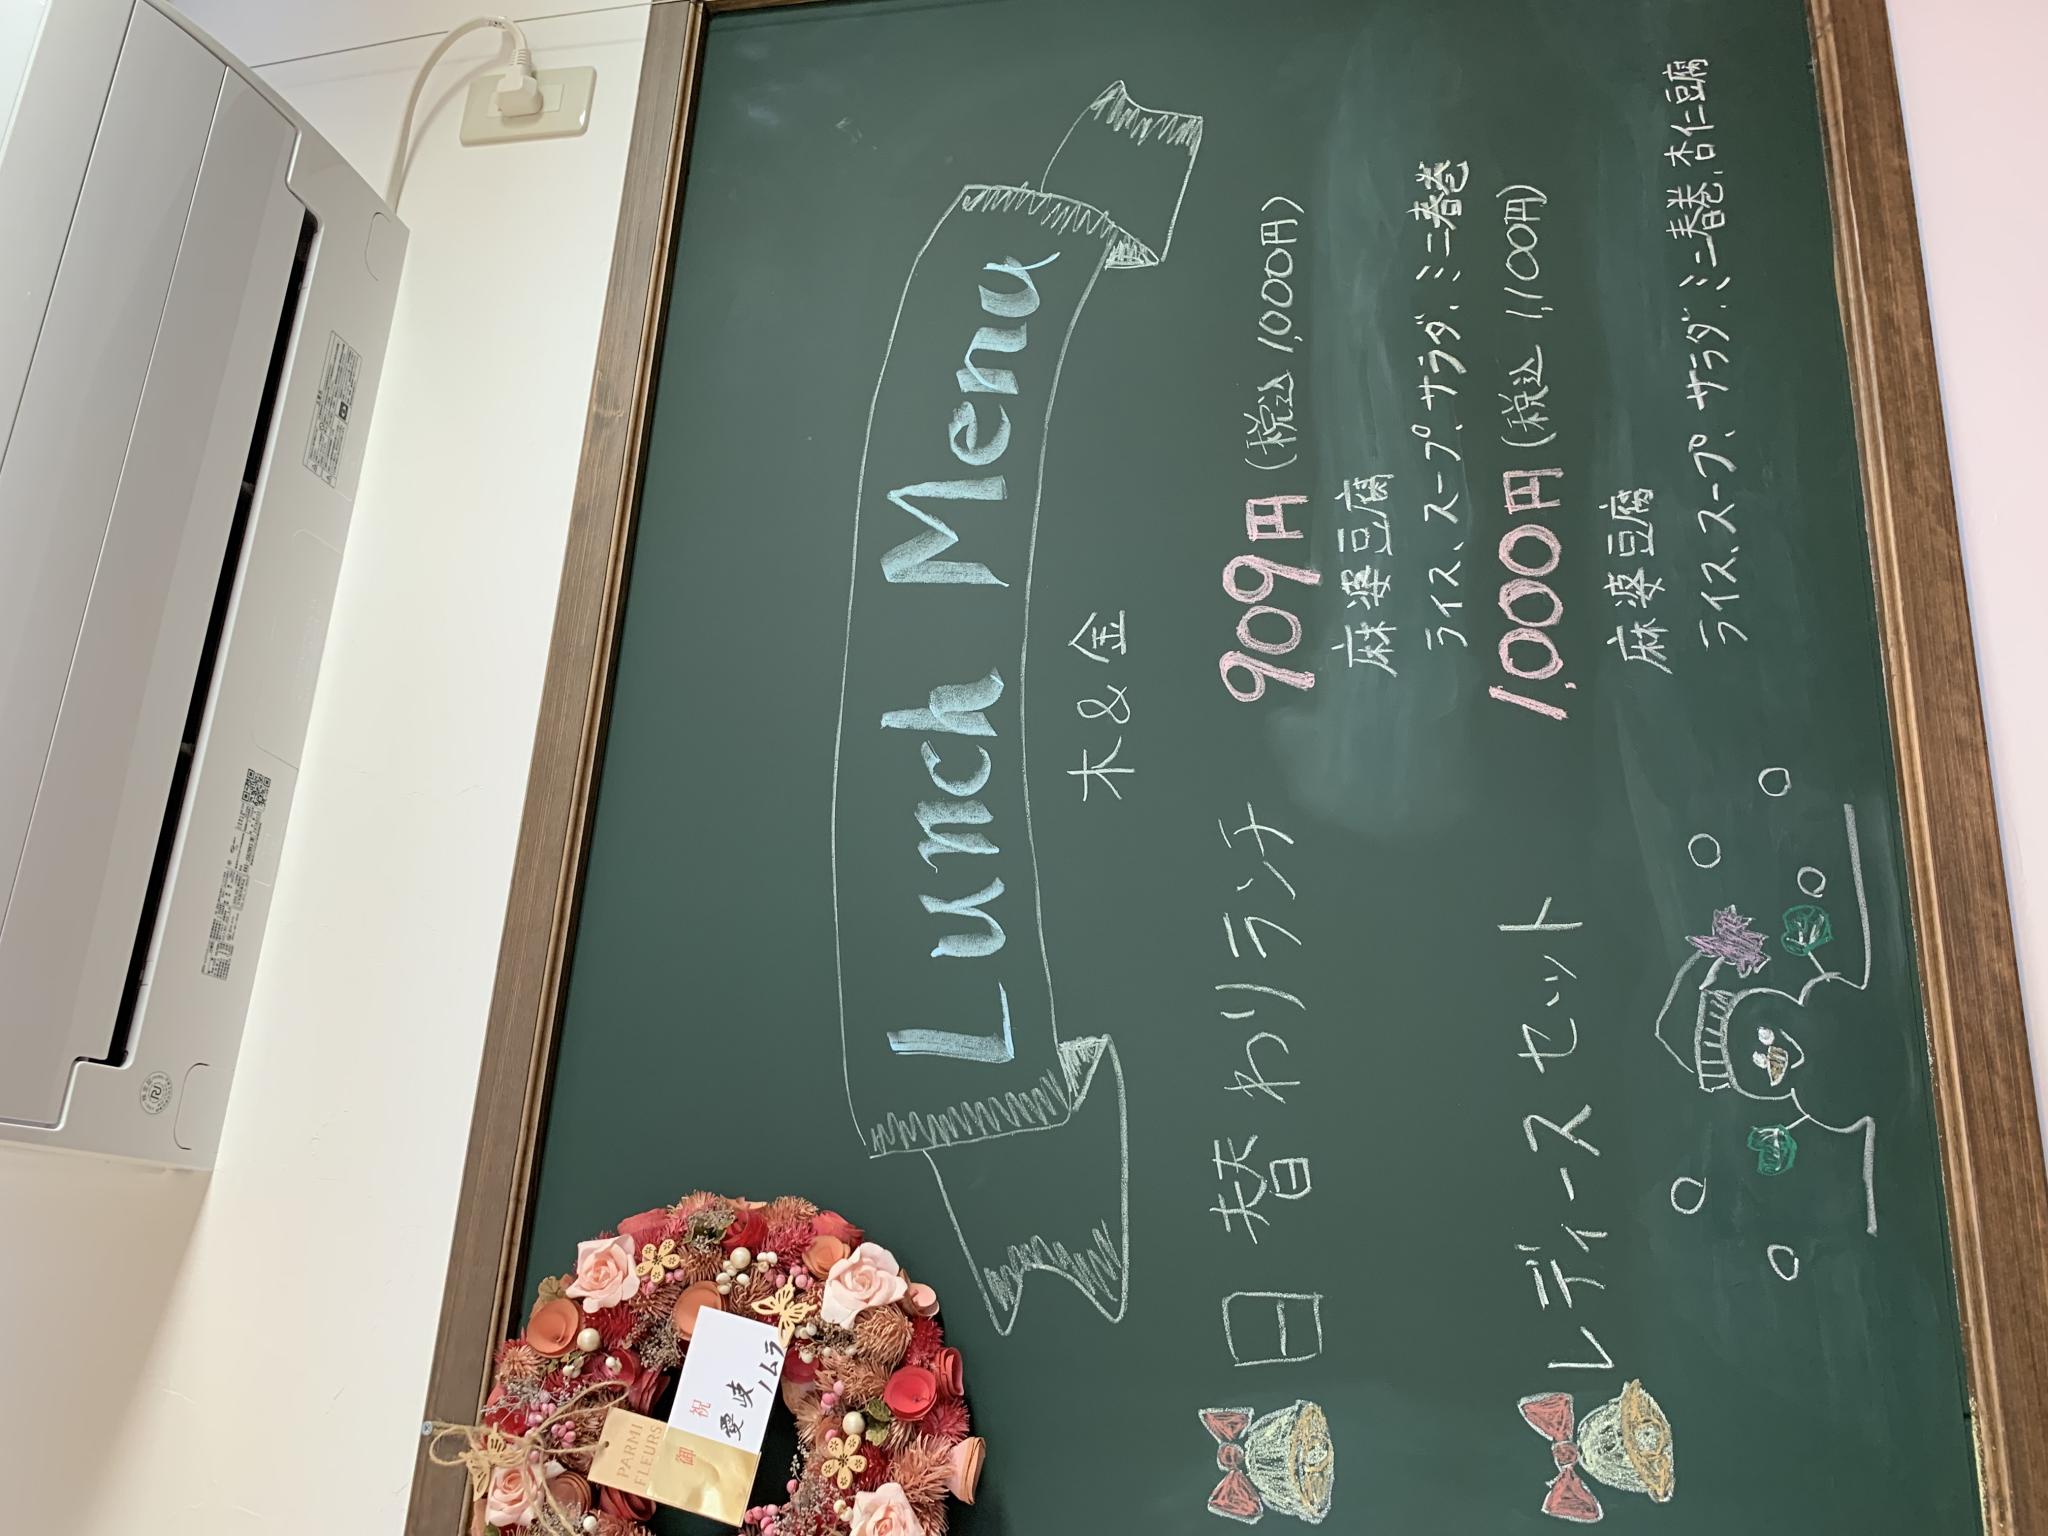 Lunch Menu
木 & 金
日替わりランチ 909円 (税込 1,000円)
麻婆豆腐
ライス、スープ、サラダ、ミニ春巻
レディースセット 1,000円 (税込 1,100円)
麻婆豆腐
ライス、スープ、サラダ、ミニ春巻、杏仁豆腐
PARMI
FLEURS
御祝
ノムラ